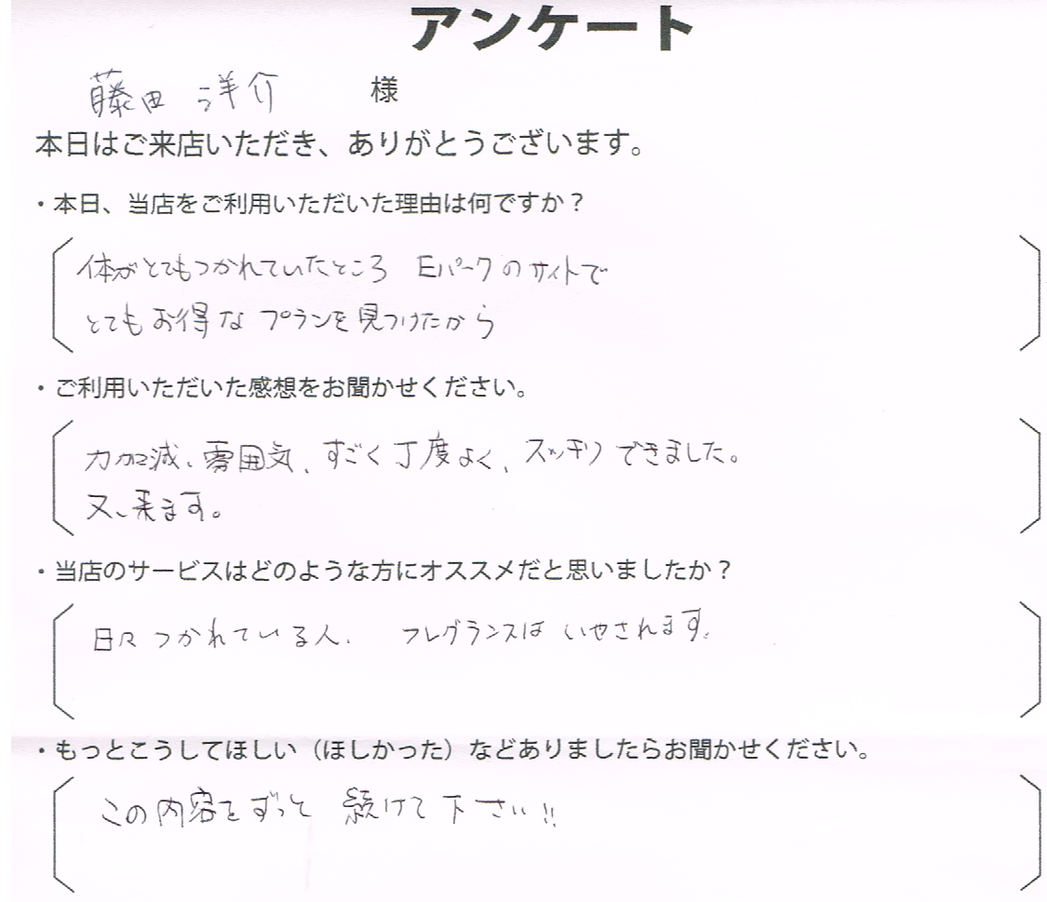 アンケート
藤田 洋介 様
本日はご来店いただき、ありがとうございます。
・本日、当店をご利用いただいた理由は何ですか？
体がとてもつかれていたところ Eパークのサイトで
とてもお得なプランを見つけたから
・ご利用いただいた感想をお聞かせください。
力加減、雰囲気、すごく丁度よく、スッキリできました。
又、来ます。
・当店のサービスはどのような方にオススメだと思いましたか？
日々つかれている人、 フレグランスはいやされます。
・もっとこうしてほしい（ほしかった）などありましたらお聞かせください。
この内容をずっと 続けて下さい!!